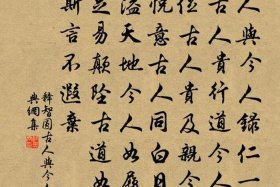 人與今人錄仁一
位古人貴行道今人
古人貴及親今人
悅意古人同白日
溢天地今人如履
之易顛墜古道如
斯言不遐棄
釋智圓古人與今人
典綱集